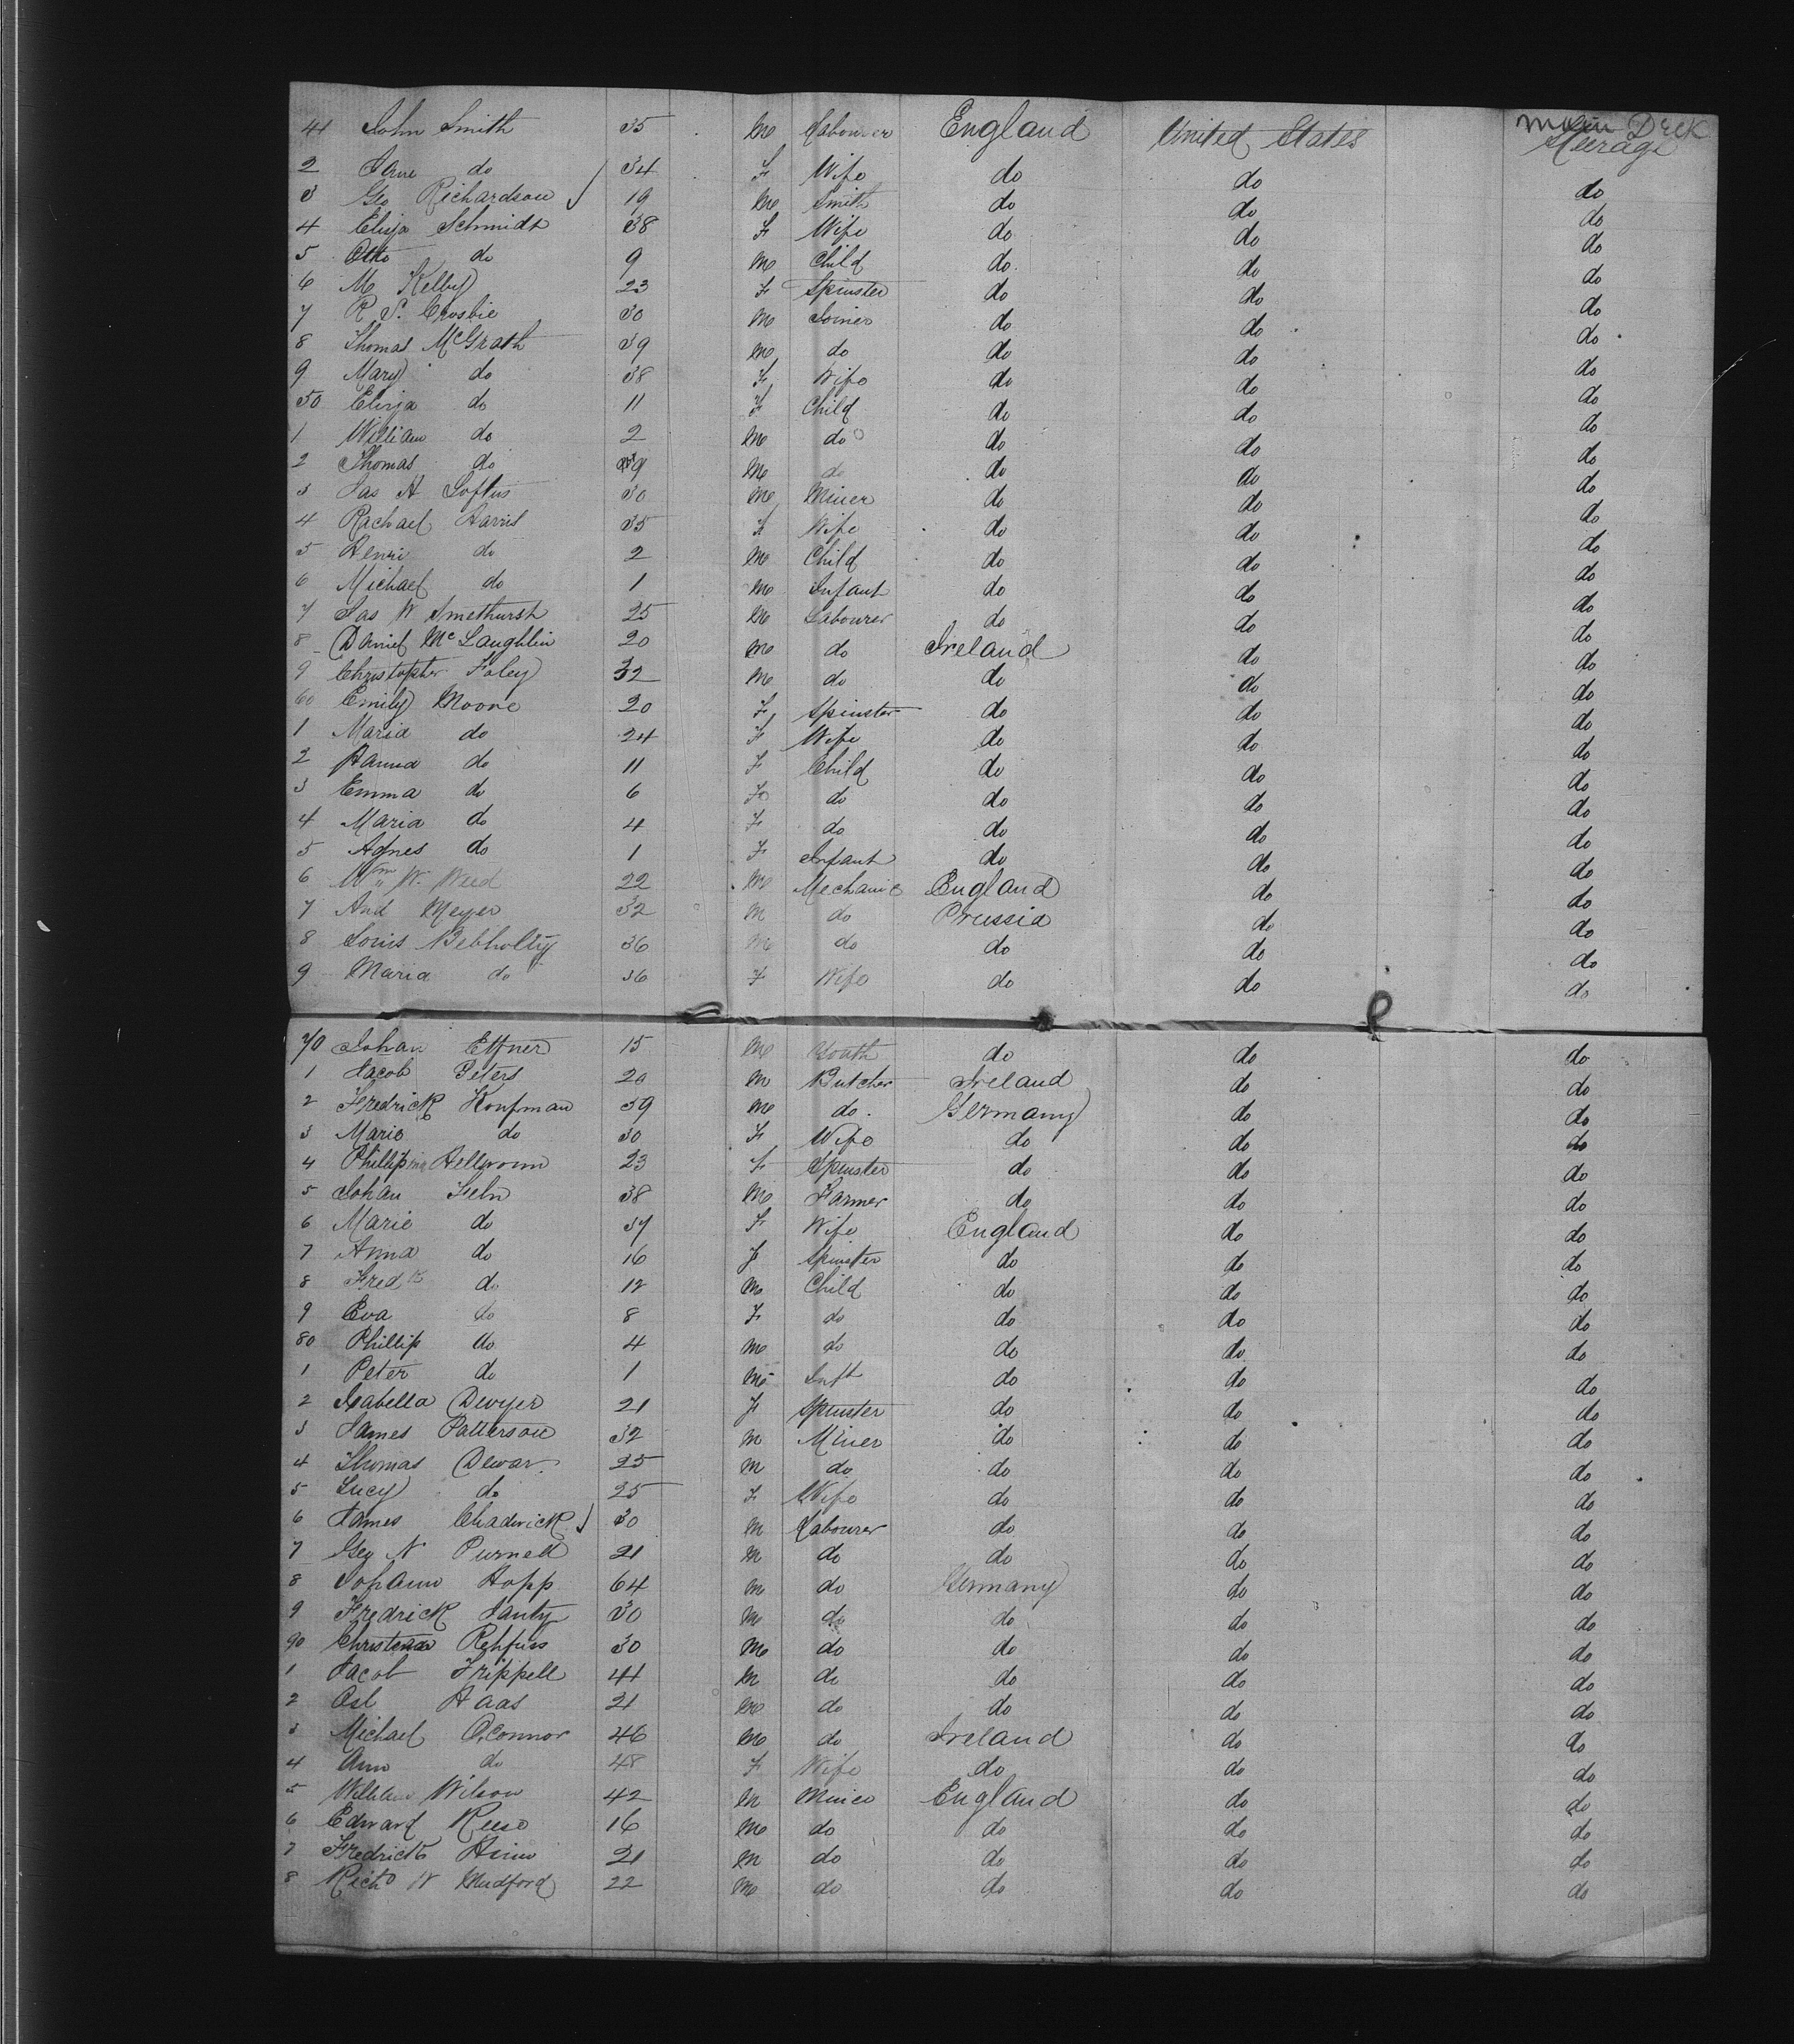 41 John Smith 35 m Labourer England United States Main Deck Steerage
2 Jane do 34 F Wife do do do
3 Geo Richardson 19 m Smith do do do
4 Eliza Schmidt 38 F Wife do do do
5 Otto do 9 m Child do do do
6 M Kelby 23 F Spinster do do do
7 R S. Crosbie 30 m Joiner do do do
8 Thomas McGrath 39 m do do do do
9 Mary do 38 F Wife do do do
50 Eliza do 11 F Child do do do
1 William do 2 m do do do do
2 Thomas do 9 m do do do do
3 Jas A Loftus 30 m Miner do do do
4 Rachael Harris 35 F Wife do do do
5 Henri do 2 m Child do do do
6 Michael do 1 m Infant do do do
7 Jas W Smethurst 25 m Labourer do do do
8 Daniel McLaughlin 20 m do Ireland do do
9 Christopher Foley 32 m do do do do
60 Emily Moore 20 F Spinster do do do
1 Maria do 24 F Wife do do do
2 Hanna do 11 F Child do do do
3 Emma do 6 F do do do do
4 Maria do 4 F do do do do
5 Agnes do 1 F Infant do do do
6 Wm W. Weed 22 m Mechanic England do do
7 And Meyer 32 m do Prussia do do
8 Louis 36 m do do do do
9 Maria do 36 F Wife do do do
70 Johan Effner 15 m Youth do do do
1 Jacob Peters 20 m Butcher Ireland do do
2 Fredrick Konfman 39 m do. Germany do do
3 Marie do 30 F Wife do do do
4 23 F Spinster do do do
5 Johan Feln 38 m Farmer do do do
6 Marie do 37 F Wife England do do
7 Anna do 16 F Spinster do do do
8 Fredk do 12 m Child do do do
9 Eva do 8 F do do do do
80 Phillip do 4 m do do do do
1 Peter do 1 m Inft do do do
2 Isabella Dwyer 21 F Spinster do do do
3 James Patterson 32 m Miner do do do
4 Thomas Dewar 25 m do do do do
5 Lucy do 25 F Wife do do do
6 James Chadwick 30 m Labourer do do do
7 Geo N Purnell 21 m do do do do
8 Johann Hopp 64 m do Germany do do
9 Fredrick Jantz 30 m do do do do
90 Christian Rehfuss 30 m do do do do
1 Jacob Frippell 44 m do do do do
2 Haas 21 m do do do do
3 Michael O'Connor 46 m do Ireland do do
4 Ann do 48 F Wife do do do
5 William Wilson 42 m Miner England do do
6 Edward Reese 16 m do do do do
7 Fredrick 21 m do do do do
8 Richd W Mudford 22 m do do do do